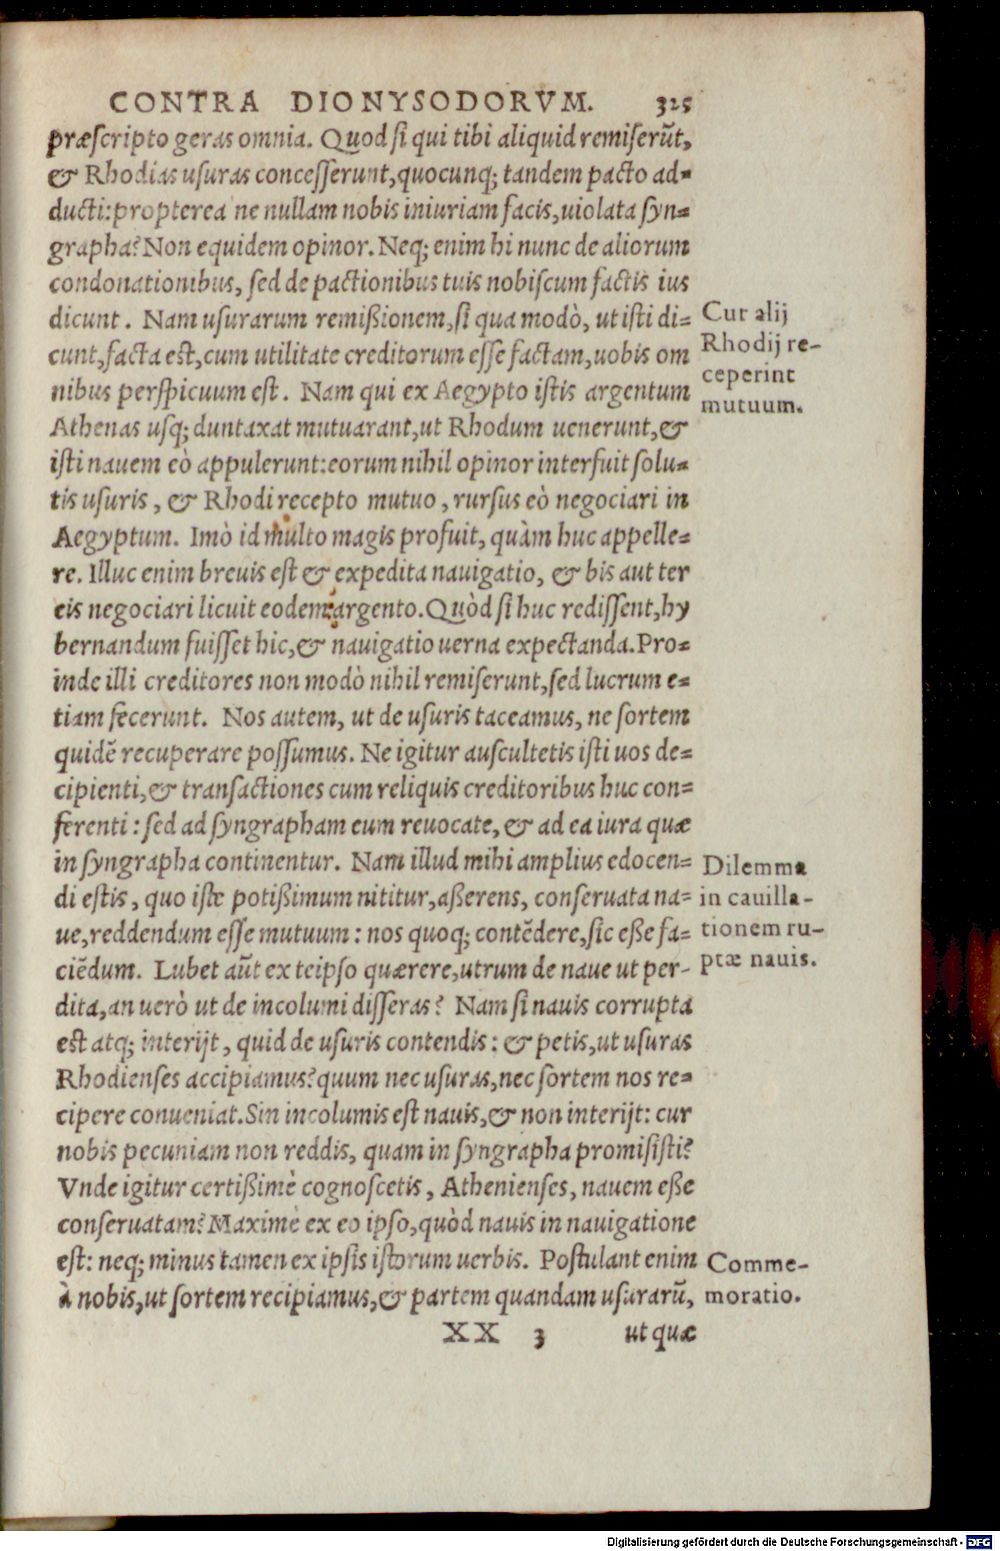 CONTRA DIONYSODORVM. 325
præſcripto geras omnia. Quod ſi qui tibi aliquid remiſerũt,
& Rhodias uſuras conceſſerunt, quocunq; tandem pacto ad-
ducti: propterea ne nullam nobis iniuriam facis, uiolata ſyn-
grapha? Non equidem opinor. Neq; enim hi nunc de aliorum
condonationibus, ſed de pactionibus tuis nobiſcum factis ius
dicunt. Nam uſurarum remißionem, ſi qua modò, ut iſti di-
cunt, facta eſt, cum utilitate creditorum eſſe factam, uobis om
nibus perſpicuum eſt. Nam qui ex Aegypto iſtis argentum
Athenas uſq; duntaxat mutuarant, ut Rhodum uenerunt, &
iſti nauem eò appulerunt: eorum nihil opinor interfuit ſolu-
tis uſuris, & Rhodi recepto mutuo, rurſus eò negociari in
Aegyptum. Imò id multo magis profuit, quàm huc appelle-
re. Illuc enim breuis eſt & expedita nauigatio, & bis aut ter
eis negociari licuit eodem argento. Quòd ſi huc rediſſent, hy
bernandum fuiſſet hic, & nauigatio uerna expectanda. Pro-
inde illi creditores non modò nihil remiſerunt, ſed lucrum e-
tiam fecerunt. Nos autem, ut de uſuris taceamus, ne ſortem
quidẽ recuperare poſſumus. Ne igitur auſcultetis iſti uos de-
cipienti, & tranſactiones cum reliquis creditoribus huc con-
ferenti: ſed ad ſyngrapham eum reuocate, & ad ea iura quæ
in ſyngrapha continentur. Nam illud mihi amplius edocen-
di eſtis, quo iſte potißimum nititur, aßerens, conſeruata na-
ue, reddendum eſſe mutuum: nos quoq; contẽdere, ſic eße fa-
ciẽdum. Lubet aũt ex teipſo quærere, utrum de naue ut per-
dita, an uerò ut de incolumi diſſeras? Nam ſi nauis corrupta
eſt atq; interijt, quid de uſuris contendis: & petis, ut uſuras
Rhodienſes accipiamus? quum nec uſuras, nec ſortem nos re-
cipere conueniat. Sin incolumis eſt nauis, & non interijt: cur
nobis pecuniam non reddis, quam in ſyngrapha promiſiſti?
Vnde igitur certißimè cognoſcetis, Athenienſes, nauem eße
conſeruatam? Maximè ex eo ipſo, quòd nauis in nauigatione
eſt: neq; minus tamen ex ipſis iſtorum uerbis. Poſtulant enim
à nobis, ut ſortem recipiamus, & partem quandam uſurarũ,
XX 3 ut quæ
Cur alij
Rhodij re-
ceperint
mutuum.
Dilemma
in cauilla-
tionem ru-
ptæ nauis.
Comme-
moratio.
Digitalisierung gefördert durch die Deutsche Forschungsgemeinschaft - DFG